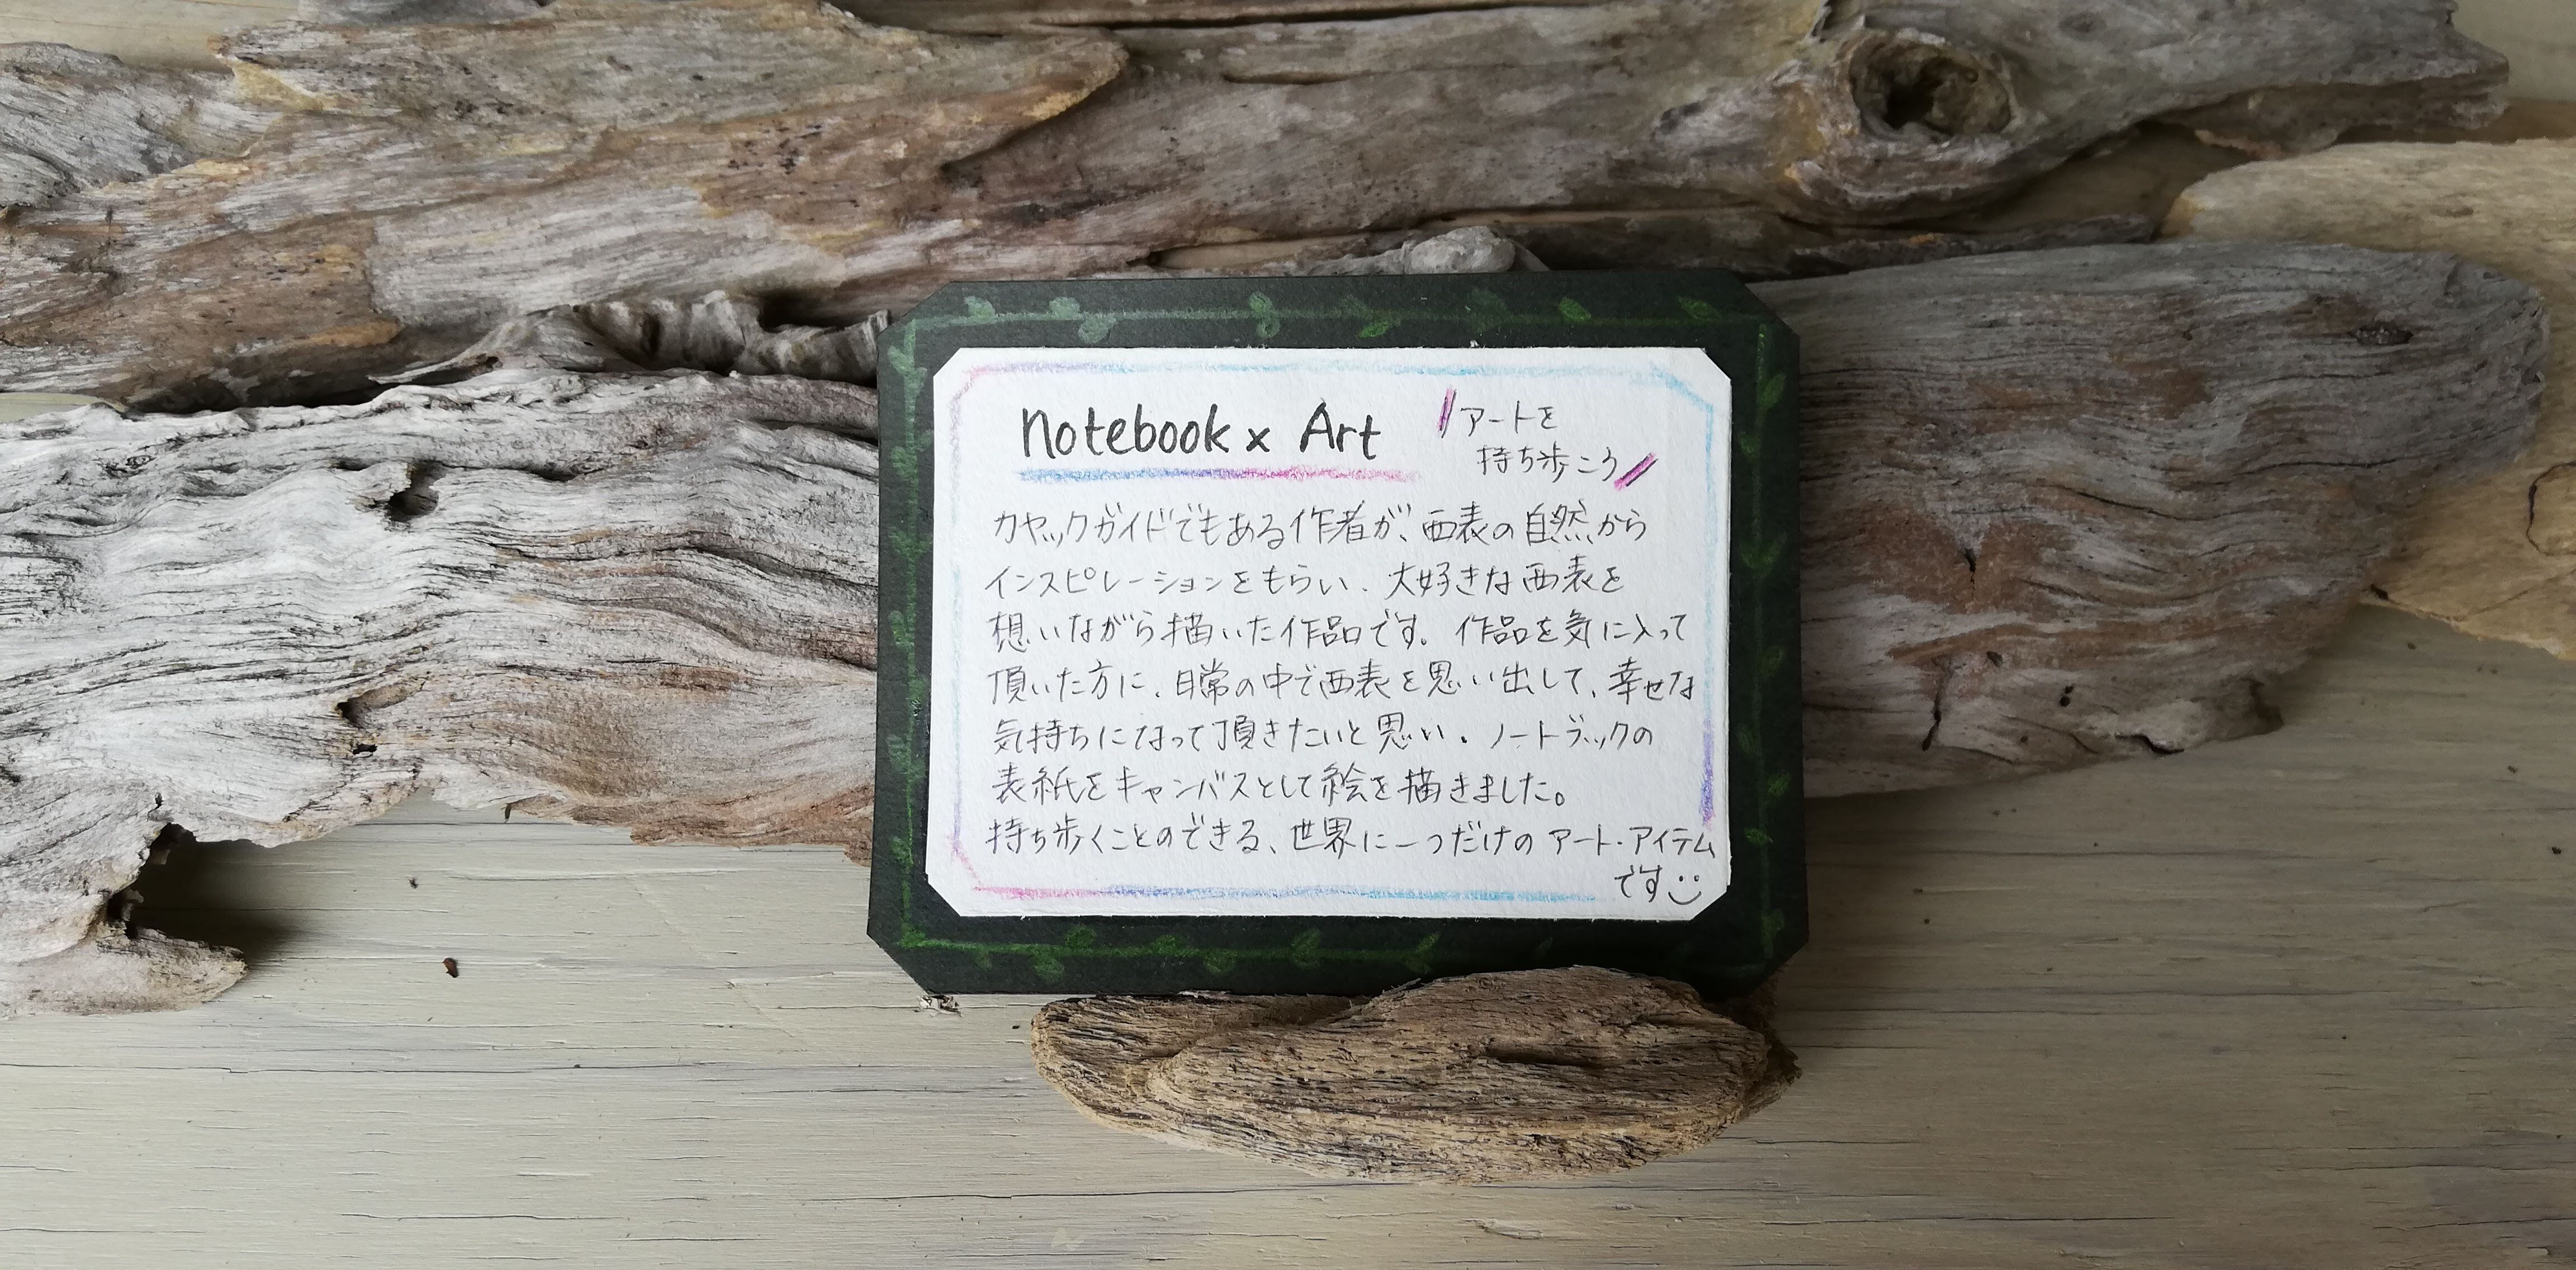 notebook x Art
アートを
持ち歩こう
カヤックガイドでもある作者が、西表の自然から
インスピレーションをもらい、大好きな西表を
想いながら描いた作品です。作品を気に入って
頂いた方に、日常の中で西表を思い出して、幸せな
気持ちになって頂きたいと思い、ノートブックの
表紙をキャンバスとして絵を描きました。
持ち歩くことのできる、世界に一つだけのアート・アイテム
です